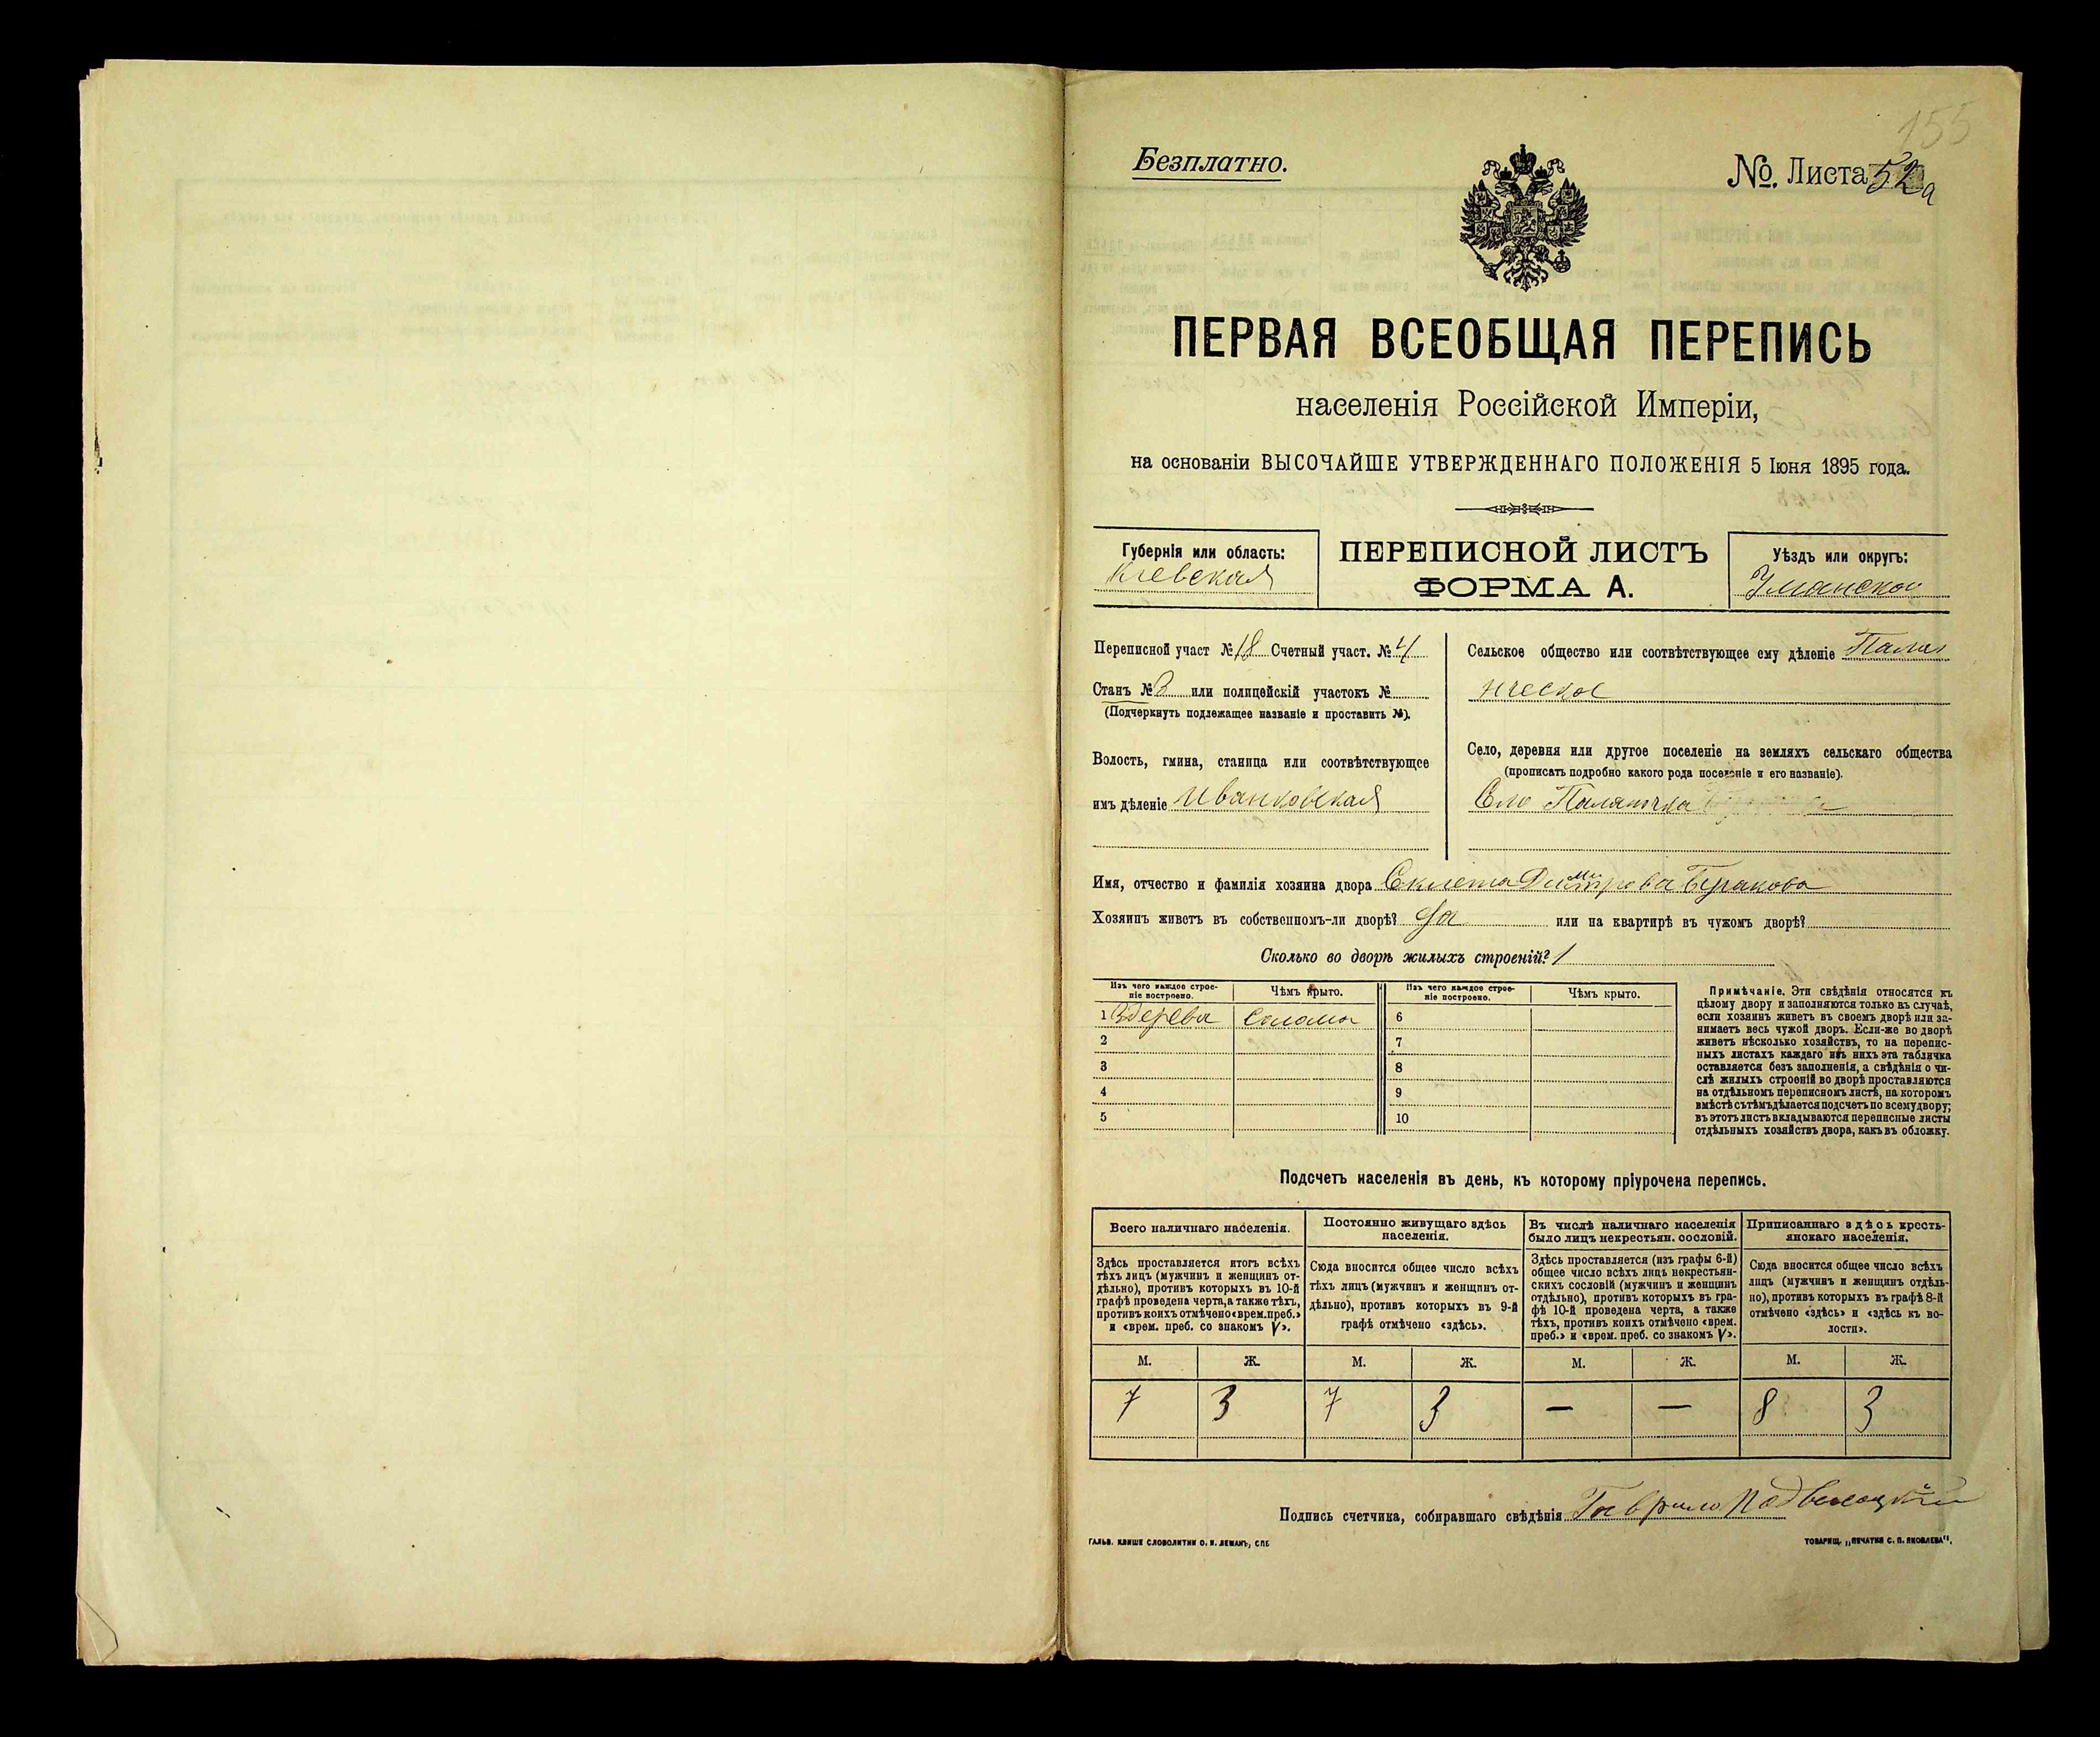 155
Безплатно.
№. Листа 52а
ПЕРВАЯ ВСЕОБЩАЯ ПЕРЕПИСЬ
населенія Россійской Имперіи,
на основаніи ВЫСОЧАЙШЕ УТВЕРЖДЕННАГО ПОЛОЖЕНІЯ 5 Іюня 1895 года.
Губернія или область:
Кіевская
ПЕРЕПИСНОЙ ЛИСТЪ
ФОРМА А.
Уѣздъ или округъ:
Уманской
Переписной участ № 18 Счетный участ. № 4
Станъ № 3 или полицейскій участокъ №
(Подчеркнуть подлежащее названіе и проставить №).
Волость, гмина, станица или соотвѣтствующее
имъ дѣленіе Иванковская
Сельское общество или соотвѣтствующее ему дѣленіе
ическое
Село, деревня или другое поселеніе на земляхъ сельскаго общества
(прописать подробно какого рода поселеніе и его названіе).
Село Паланочка
Имя, отчество и фамилія хозяина двора Дмитрова Буракова
Хозяинъ живетъ въ собственномъ-ли дворѣ? да или на квартирѣ въ чужомъ дворѣ?
Сколько во дворѣ жилыхъ строеній? 1
Изъ чего каждое строе-
ніе построено.
Чѣмъ крыто.
Изъ чего каждое строе-
ніе построено.
Чѣмъ крыто.
1 Здерева соломы 6
2 7
3 8
4 9
5 10
Примѣчаніе. Эти свѣдѣнія относятся къ
цѣлому двору и заполняются только въ случаѣ,
если хозяинъ живетъ въ своемъ дворѣ или за-
нимаетъ весь чужой дворъ. Если-же во дворѣ
живетъ нѣсколько хозяйствъ, то на перепис-
ныхъ листахъ каждаго изъ нихъ эта табличка
оставляется безъ заполненія, а свѣдѣнія о чи-
слѣ жилыхъ строеній во дворѣ проставляются
на отдѣльномъ переписномъ листѣ, на которомъ
вмѣстѣ съ тѣмъ дѣлается подсчетъ по всему двору;
въ этотъ листъ вкладываются переписные листы
отдѣльныхъ хозяйствъ двора, какъ въ обложку.
Подсчетъ населенія въ день, къ которому пріурочена перепись.
Всего наличнаго населенія.
Здѣсь проставляется итогъ всѣхъ
тѣхъ лицъ (мужчинъ и женщинъ от-
дѣльно), противъ которыхъ въ 10-й
графѣ проведена черта, а также тѣхъ,
противъ коихъ отмѣчено «врем. преб.»
и «врем. преб. со знакомъ V».
Постоянно живущаго здѣсь
населенія.
Сюда вносится общее число всѣхъ
тѣхъ лицъ (мужчинъ и женщинъ от-
дѣльно), противъ которыхъ въ 9-й
графѣ отмѣчено «здѣсь».
Въ числѣ наличнаго населенія
было лицъ некрестьян. сословій.
Здѣсь проставляется (изъ графы 6-й)
общее число всѣхъ лицъ некрестьян-
скихъ сословій (мужчинъ и женщинъ
отдѣльно), противъ которыхъ въ гра-
фѣ 10-й проведена черта, а также
тѣхъ, противъ коихъ отмѣчено «врем.
преб.» и «врем. преб. со знакомъ V».
Приписаннаго здѣсь кресть-
янскаго населенія.
Сюда вносится общее число всѣхъ
лицъ (мужчинъ и женщинъ отдѣль-
но), противъ которыхъ въ графѣ 8-й
отмѣчено «здѣсь» и «здѣсь къ во-
лости».
М. Ж. М. Ж. М. Ж. М. Ж.
7 3 7 3 — — 8 3
Подпись счетчика, собиравшаго свѣдѣнія Гаврило
ГАЛЬВ. КЛИШЕ СЛОВОЛИТНИ О. И. ЛЕМАНЪ, СПБ
ТОВАРИЩ. „ПЕЧАТНЯ С. П. ЯКОВЛЕВА“.